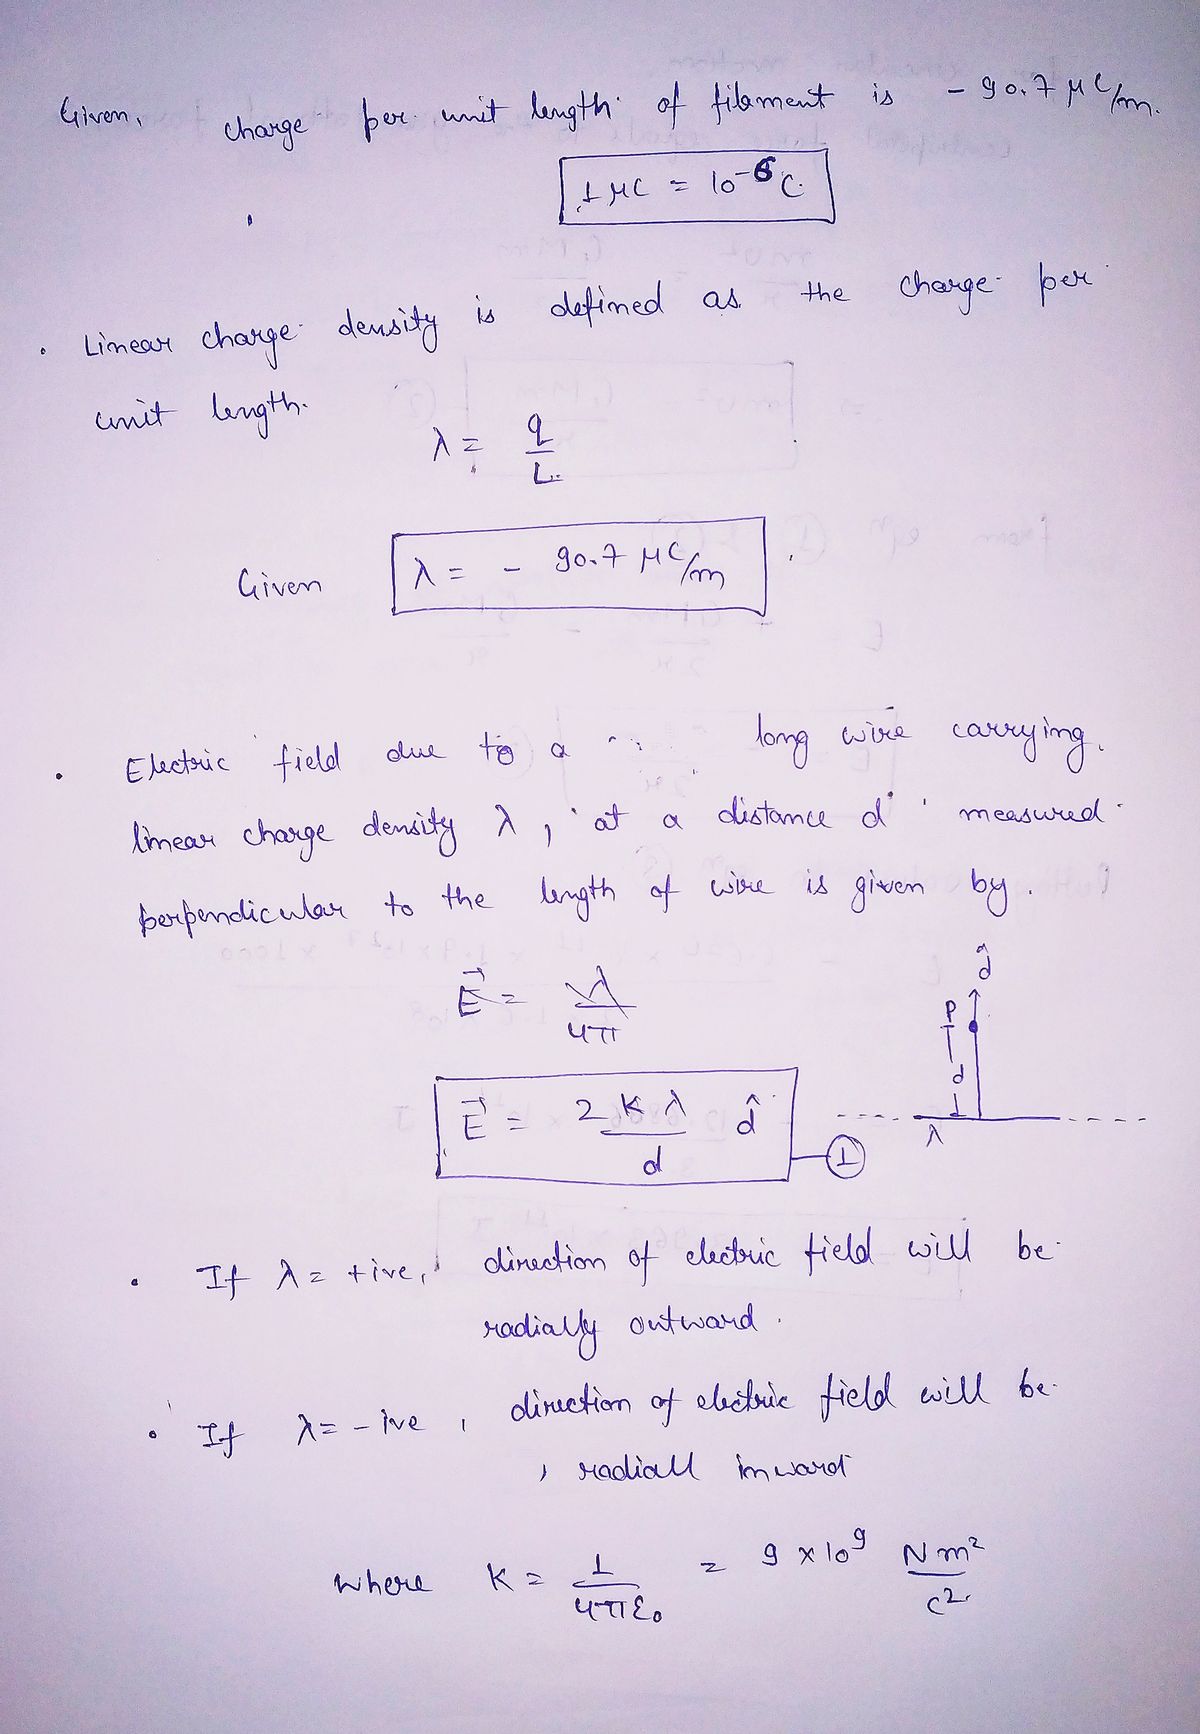 Given, charge per unit length of filament is - 90.7 μC/m.
1 μC = 10⁻⁶ C.
• Linear charge density is defined as the charge per
unit length.
λ = q/L
Given λ = - 90.7 μC/m
• Electric field due to a long wire carrying
linear charge density λ, at a distance d measured
perpendicular to the length of wire is given by.
E⃗ = λ/4π
E⃗ = 2Kλ/d d̂ ①
d̂
P
d
λ
• If λ = +ive, direction of electric field will be
radially outward.
• If λ = -ive, direction of electric field will be
radiall inward
where K = 1/4πε₀ = 9 × 10⁹ Nm²/C²